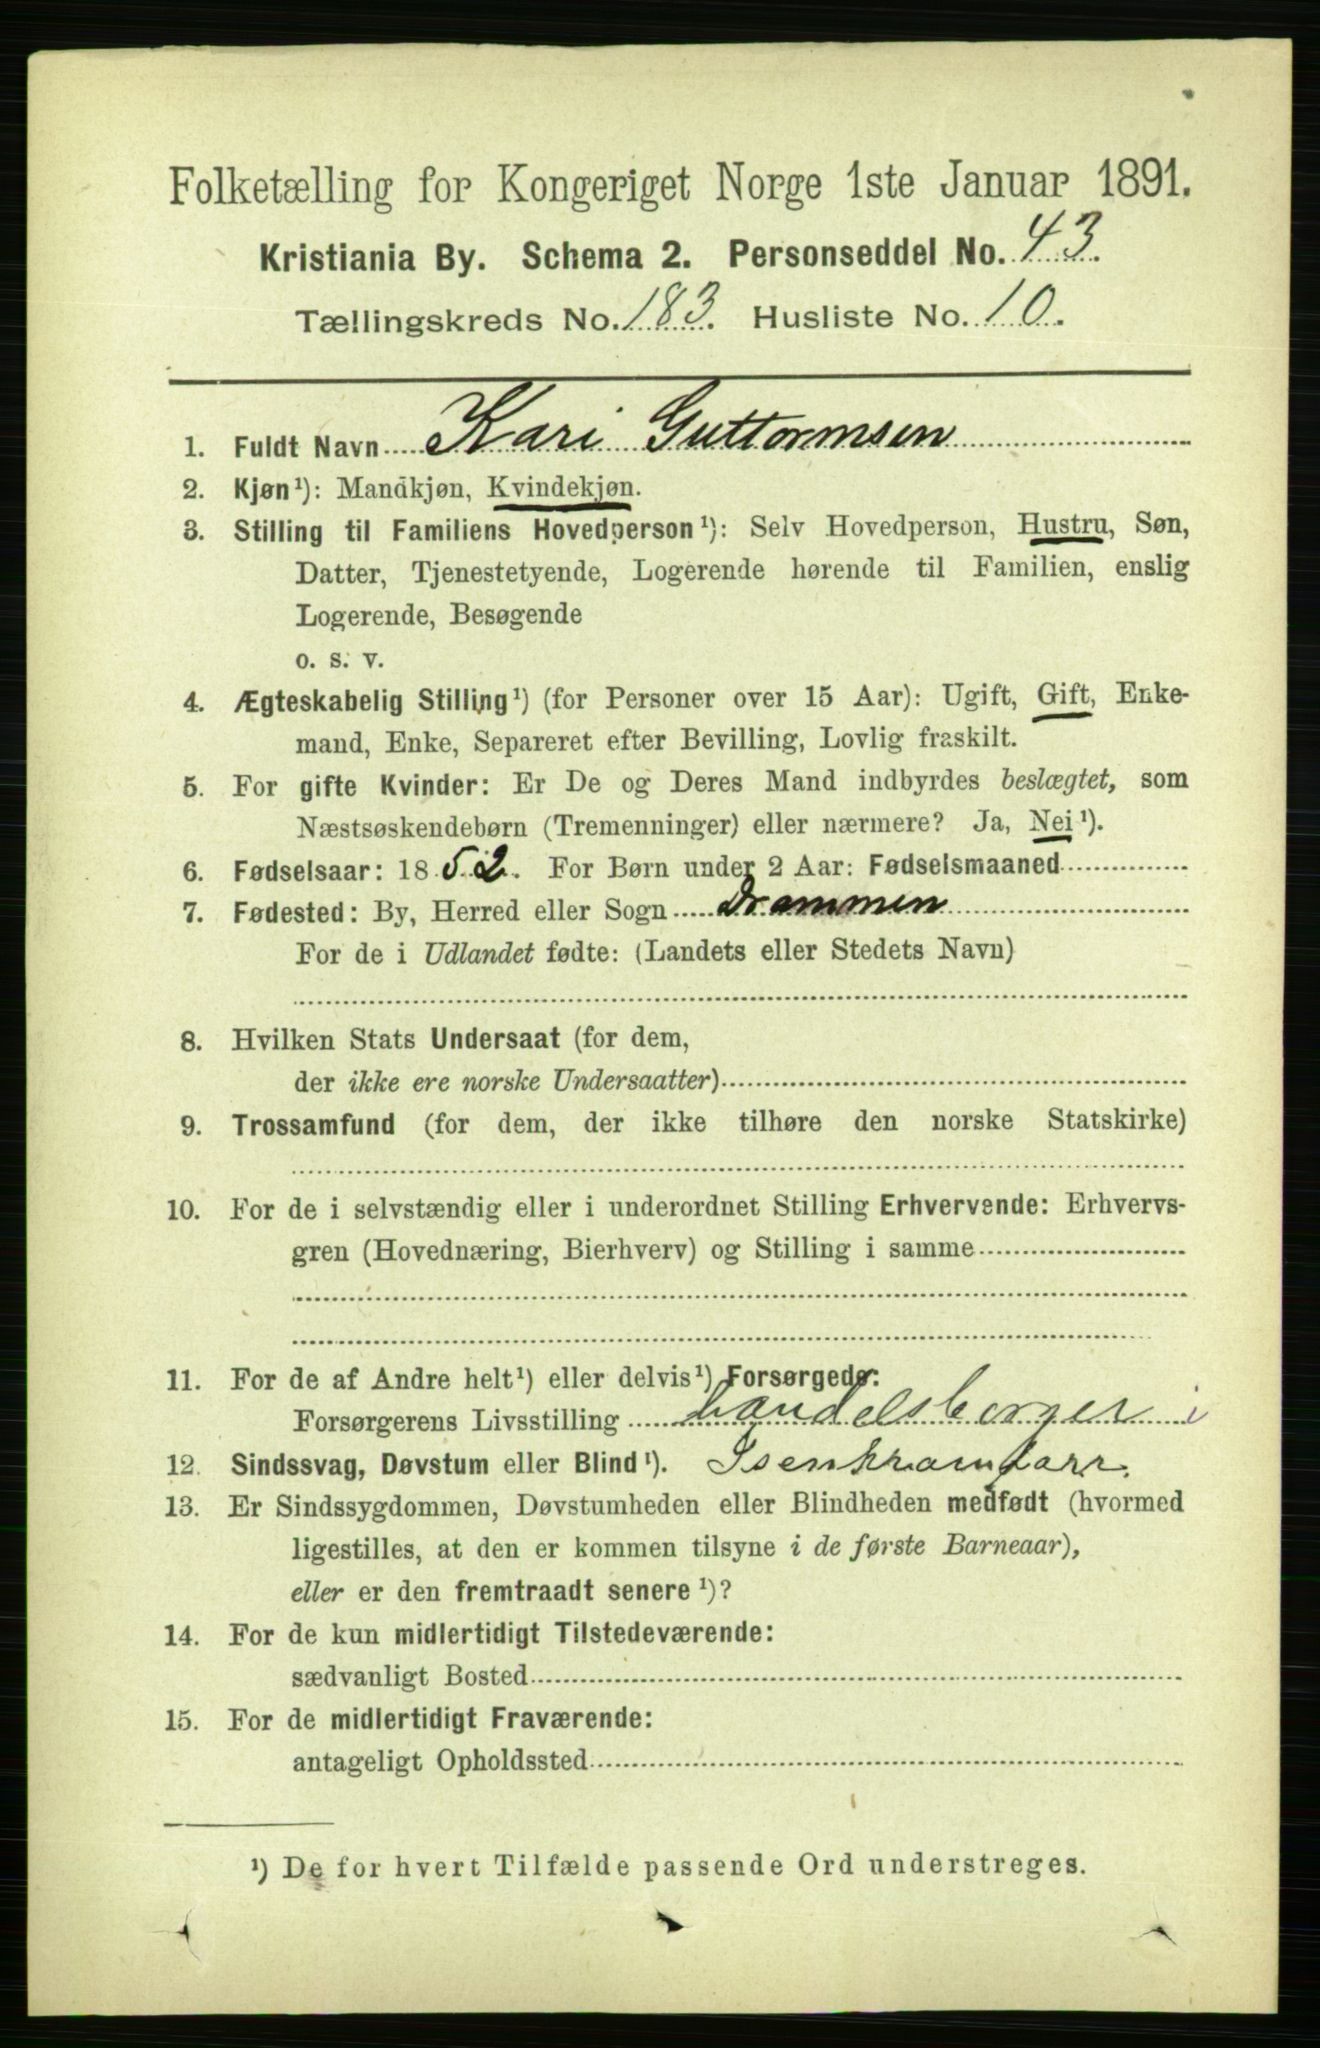 Folketælling for Kongeriget Norge 1ste Januar 1891.
Kristiania By. Schema 2. Personseddel No. 43.
Tællingskreds No. 183. Husliste No. 10.
1. Fuldt Navn Kari Guttormsen
2. Kjøn¹): Mandkjøn, Kvindekjøn.
3. Stilling til Familiens Hovedperson¹): Selv Hovedperson, Hustru, Søn,
Datter, Tjenestetyende, Logerende hørende til Familien, enslig
Logerende, Besøgende
o. s. v.
4. Ægteskabelig Stilling¹) (for Personer over 15 Aar): Ugift, Gift, Enke-
mand, Enke, Separeret efter Bevilling, Lovlig fraskilt.
5. For gifte Kvinder: Er De og Deres Mand indbyrdes beslægtet, som
Næstsøskendebørn (Tremenninger) eller nærmere? Ja, Nei¹).
6. Fødselsaar: 1852. For Børn under 2 Aar: Fødselsmaaned
7. Fødested: By, Herred eller Sogn Drammen
For de i Udlandet fødte: (Landets eller Stedets Navn)
8. Hvilken Stats Undersaat (for dem,
der ikke ere norske Undersaatter)
9. Trossamfund (for dem, der ikke tilhøre den norske Statskirke)
10. For de i selvstændig eller i underordnet Stilling Erhvervende: Erhvervs-
gren (Hovednæring, Bierhverv) og Stilling i samme
11. For de af Andre helt¹) eller delvis¹) Forsørgede:
Forsørgerens Livsstilling handelsborger i
12. Sindssvag, Døvstum eller Blind¹). Isenkramforr.
13. Er Sindssygdommen, Døvstumheden eller Blindheden medfødt (hvormed
ligestilles, at den er kommen tilsyne i de første Barneaar),
eller er den fremtraadt senere¹)?
14. For de kun midlertidigt Tilstedeværende:
sædvanligt Bosted
15. For de midlertidigt Fraværende:
antageligt Opholdssted
¹) De for hvert Tilfælde passende Ord understreges.